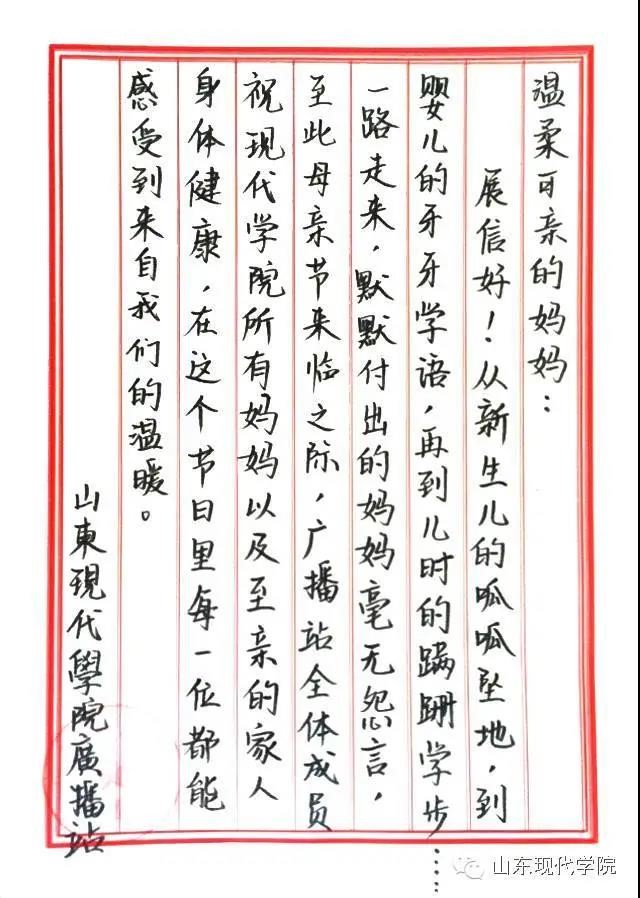 温柔可亲的妈妈：
展信好！从新生儿的呱呱坠地，到
婴儿的牙牙学语，再到儿时的蹒跚学步……
一路走来，默默付出的妈妈毫无怨言，
至此母亲节来临之际，广播站全体成员
祝现代学院所有妈妈以及至亲的家人
身体健康，在这个节日里每一位都能
感受到来自我们的温暖。
山東現代學院廣播站
山东现代学院